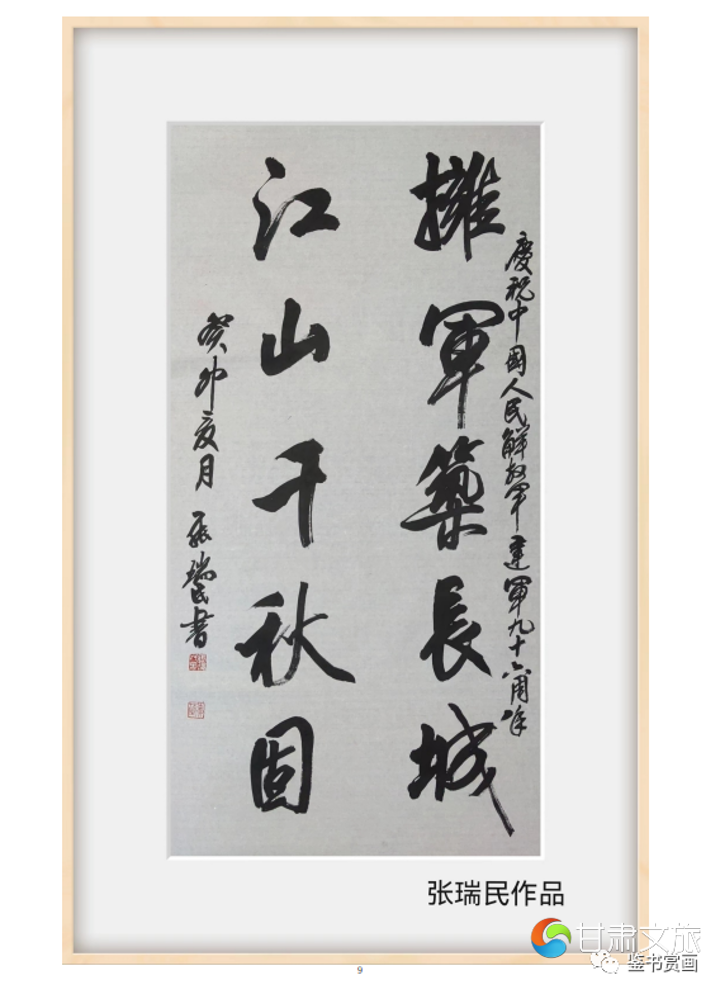 慶祝中國人民解放軍建軍九十六周年
擁軍築長城
江山千秋固
癸卯亥月 張瑞民書
张瑞民作品
甘肃文旅
鉴书赏画
9